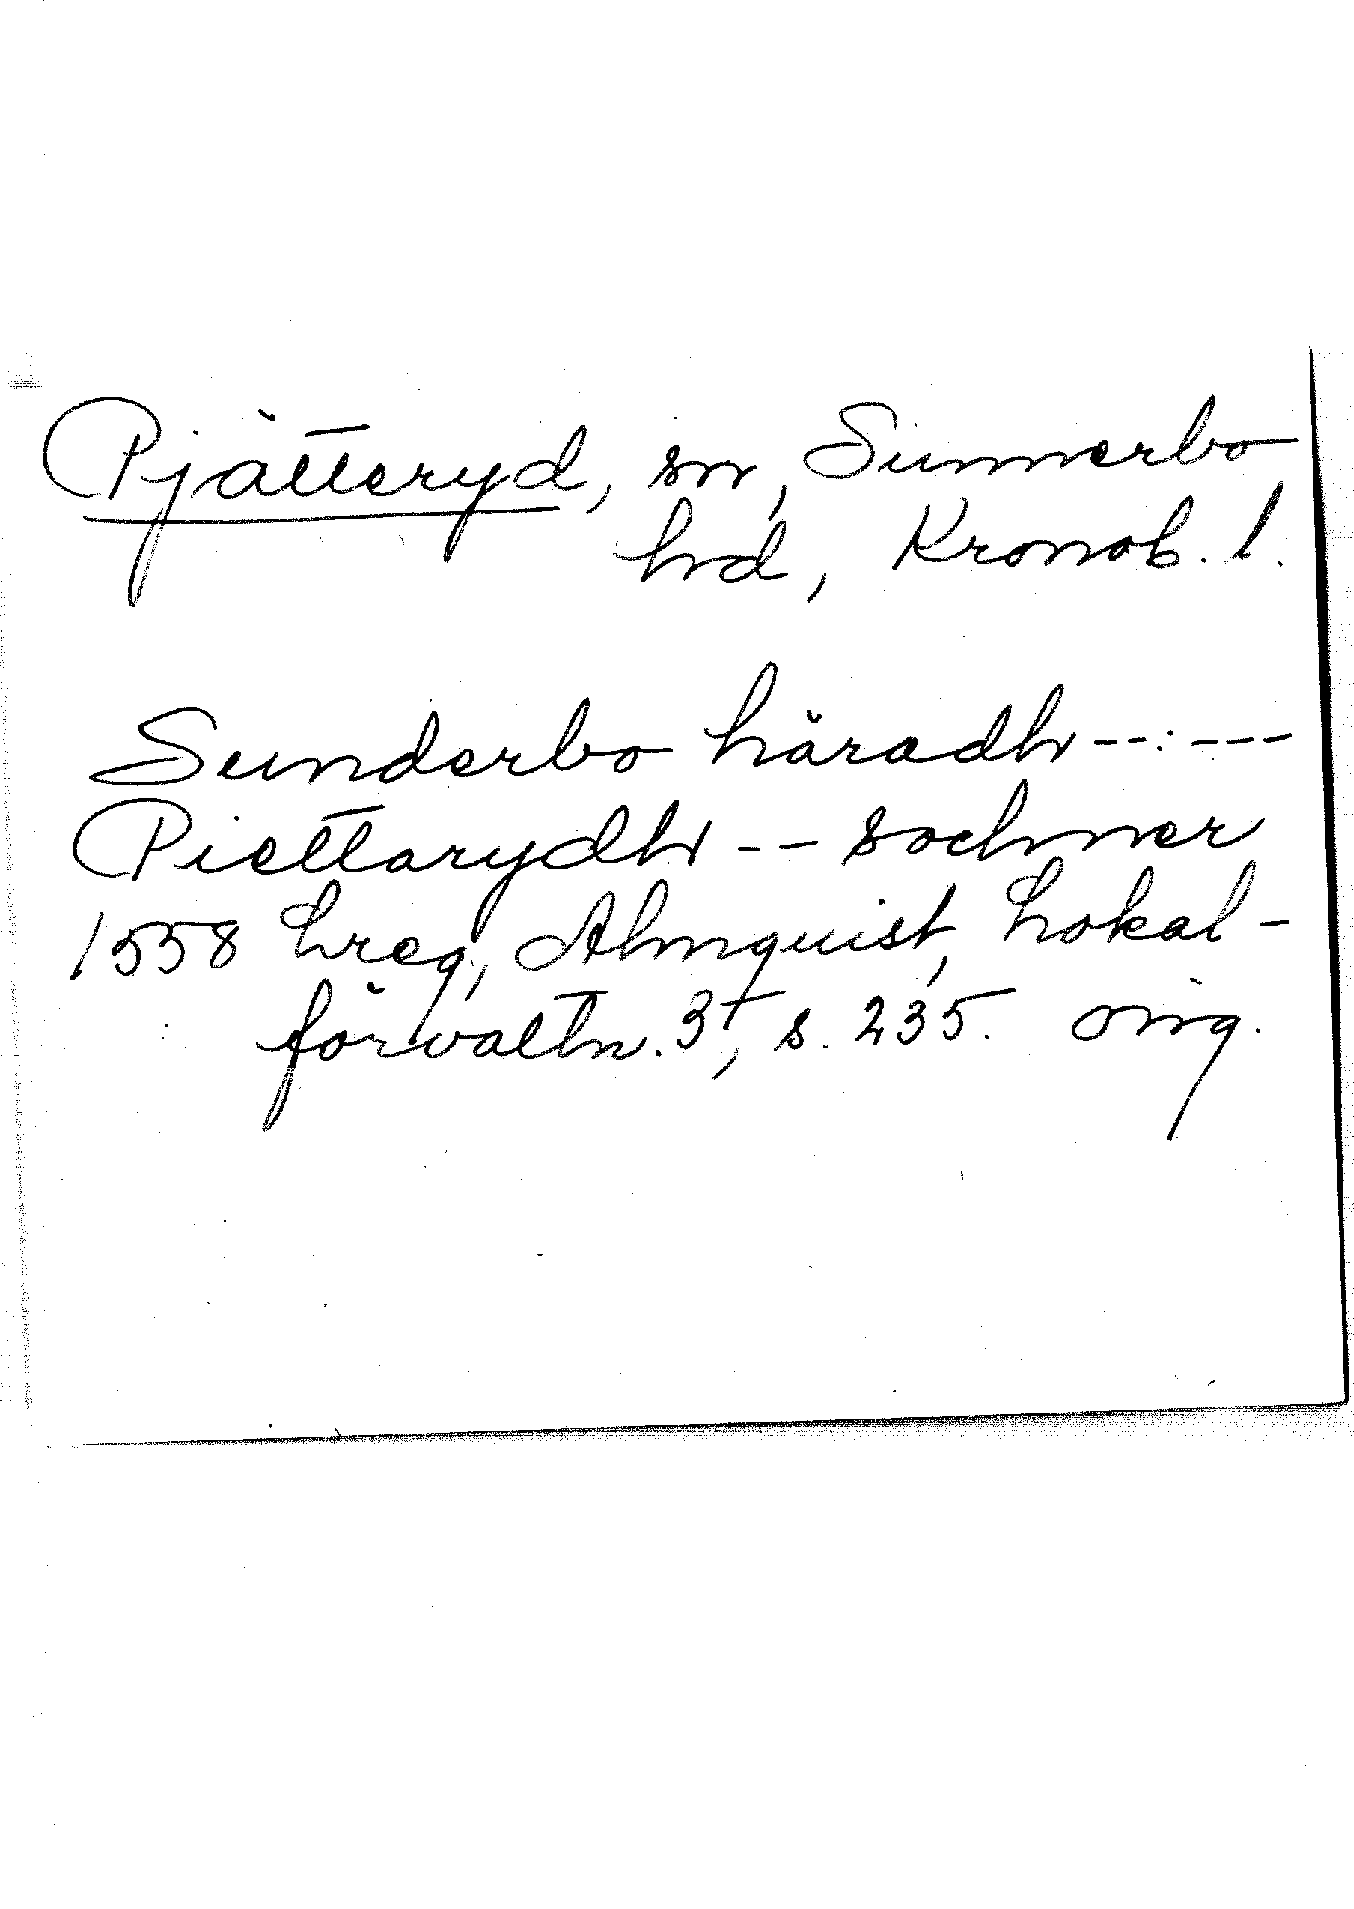 Pjätteryd, sn, Sunnerbo
hd, Kronob. l.
Sunderbo häradh --:---
Piettarydh -- sochner
1558 Lreg, Almquist, Lokal-
förvaltn. 3†, s. 235. orig.